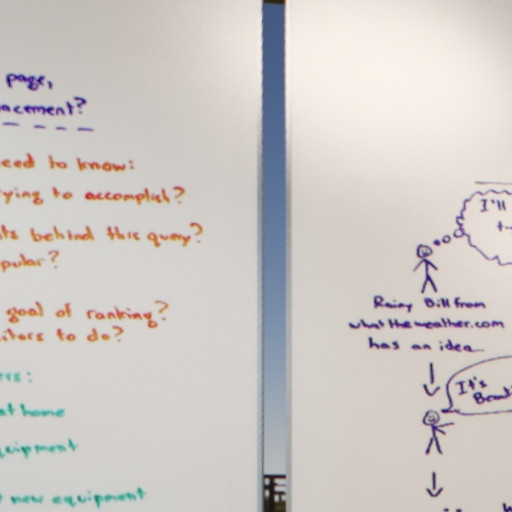 page,
acement?
eed to know:
ying to accomplish?
ts behind this query?
pular?
goal of ranking?
itors to do?
ers:
at home
quipment
new equipment
I'll
Rainy Bill from
whattheweather.com
has an idea
It's